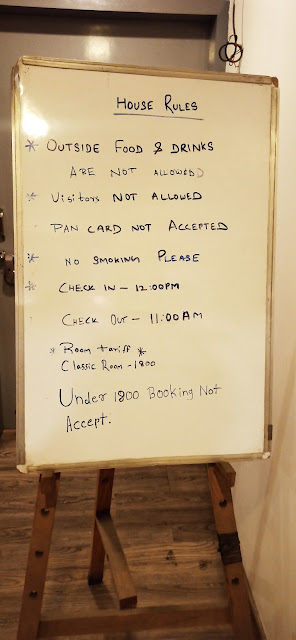 HOUSE RULES
* OUTSIDE FOOD & DRINKS
ARE NOT ALLOWEDD
* Visitors NOT ALLOWED
PAN CARD NOT ACCEPTED
* NO SMOKING PLEASE
* CHECK IN - 12:00PM
CHECK OUT - 11:00AM
* Room tariff *
Classic Room - 1800
Under 1800 Booking Not
Accept.